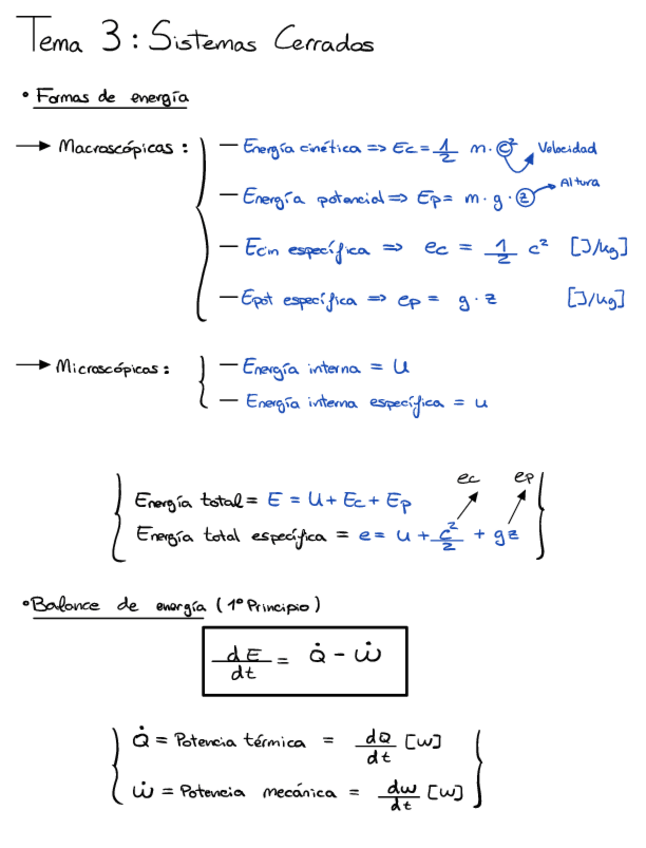 Tema 3: Sistemas Cerrados
• Formas de energía
→ Macroscópicas:
— Energía cinética => Ec = 1/2 m · c² Velocidad
— Energía potencial => Ep = m · g · z Altura
— Ecin específica => ec = 1/2 c² [J/kg]
— Epot específica => ep = g · z [J/kg]
→ Microscópicas:
— Energía interna = U
— Energía interna específica = u
ec ep
Energía total = E = U + Ec + Ep
Energía total específica = e = u + c²/2 + gz
• Balance de energía (1º Principio)
dE/dt = Q̇ - Ẇ
Q̇ = Potencia térmica = dQ/dt [W]
Ẇ = Potencia mecánica = dw/dt [W]